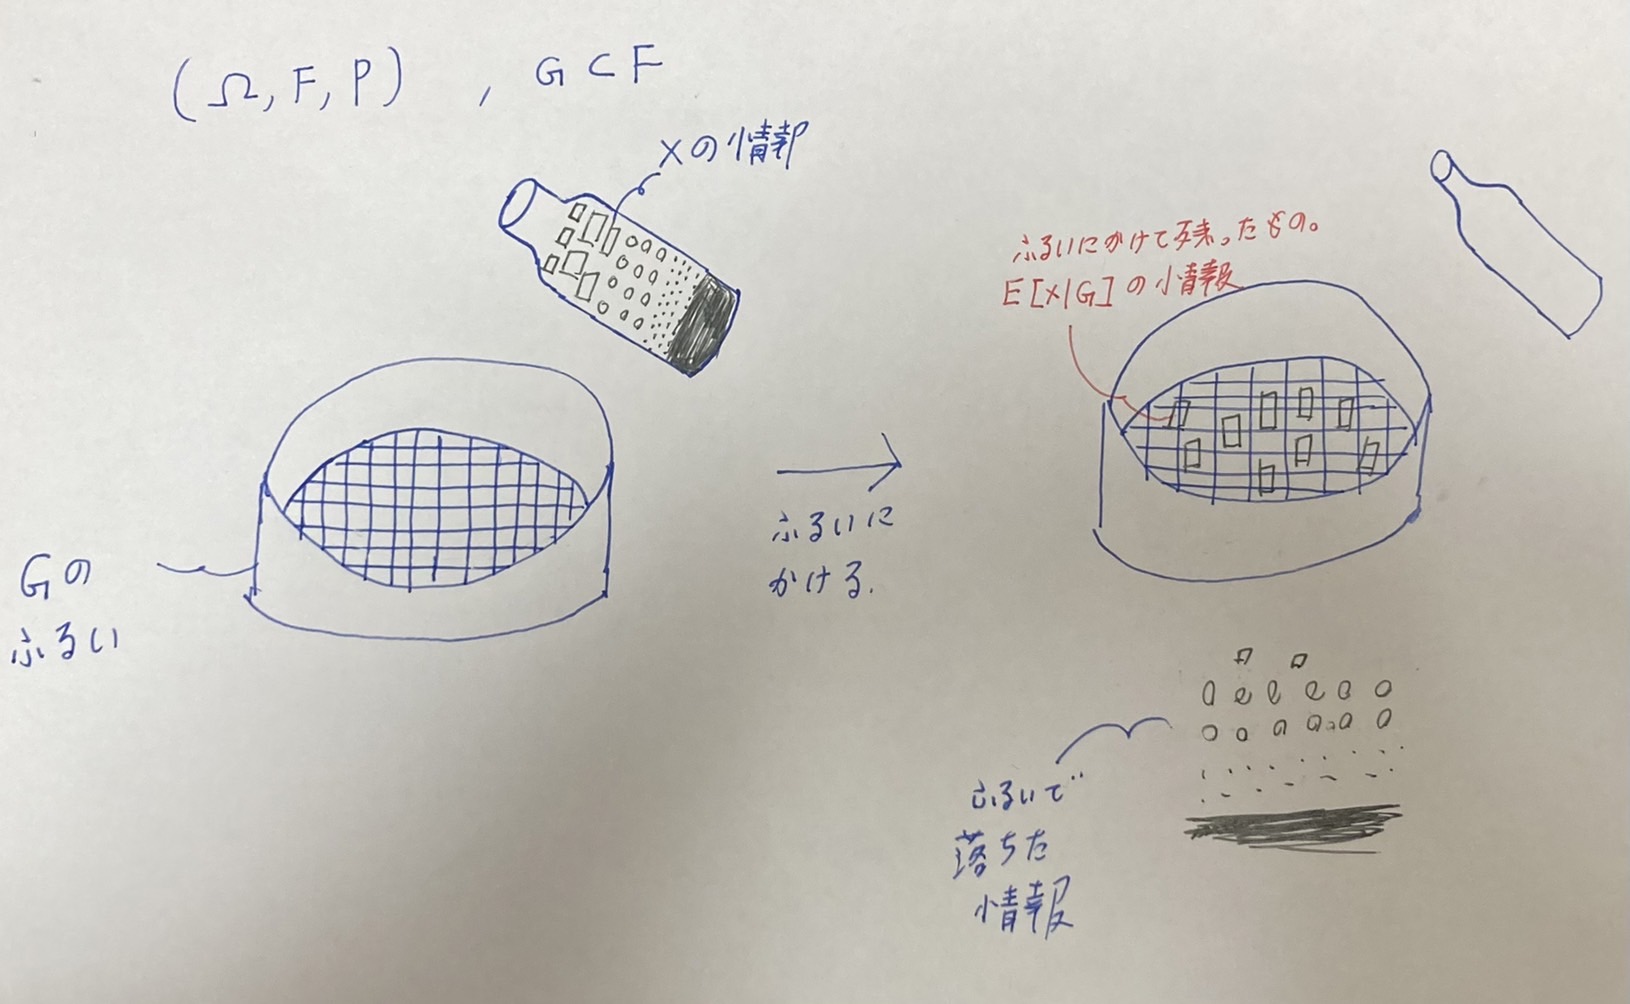 (Ω, F, P) , G ⊂ F
Xの情報
Gの
ふるい
ふるいに
かける.
ふるいにかけて残ったもの。
E[X|G]の情報
ふるいで
落ちた
情報